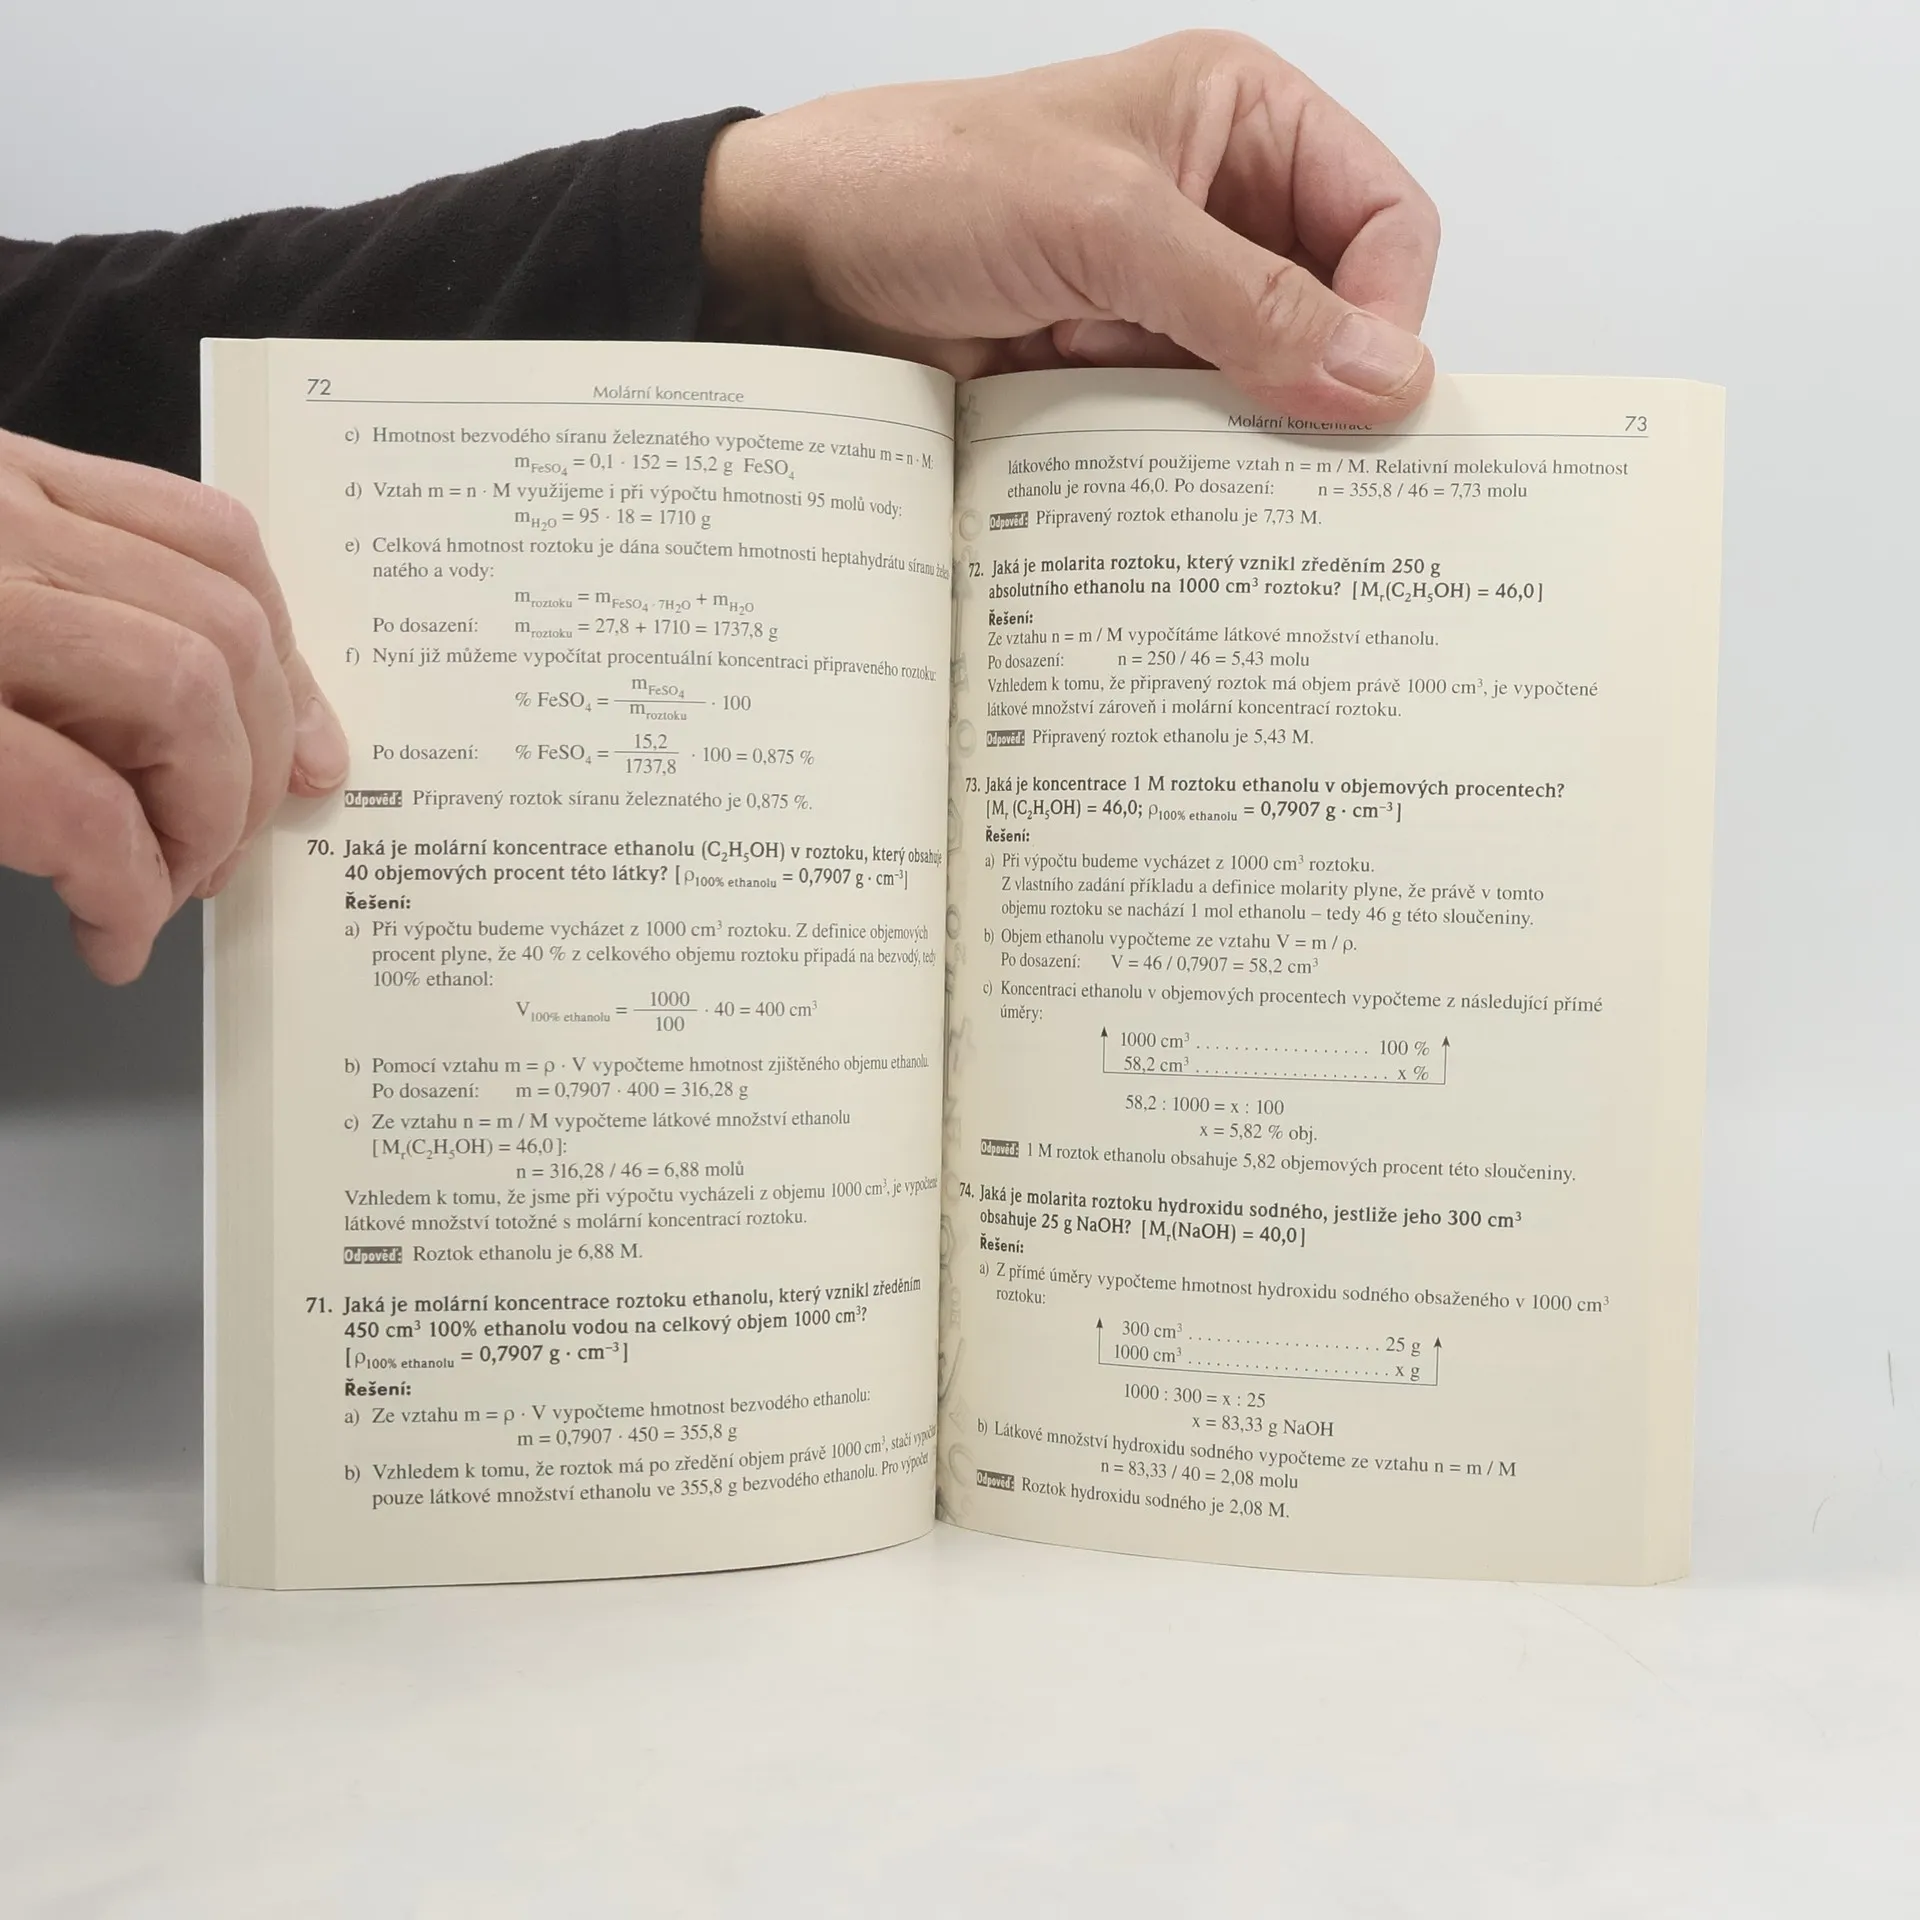 72
Molární koncentrace
c) Hmotnost bezvodého síranu železnatého vypočteme ze vztahu m = n · M:
m_FeSO₄ = 0,1 · 152 = 15,2 g FeSO₄
d) Vztah m = n · M využijeme i při výpočtu hmotnosti 95 molů vody:
m_H₂O = 95 · 18 = 1710 g
e) Celková hmotnost roztoku je dána součtem hmotnosti heptahydrátu síranu
natého a vody:
m_roztoku = m_FeSO₄ · 7H₂O + m_H₂O
Po dosazení: m_roztoku = 27,8 + 1710 = 1737,8 g
f) Nyní již můžeme vypočítat procentuální koncentraci připraveného roztoku:
% FeSO₄ = m_FeSO₄ / m_roztoku · 100
Po dosazení: % FeSO₄ = 15,2 / 1737,8 · 100 = 0,875 %
Odpověď: Připravený roztok síranu železnatého je 0,875 %.
70. Jaká je molární koncentrace ethanolu (C₂H₅OH) v roztoku, který obsahuje
40 objemových procent této látky? [ρ100% ethanolu = 0,7907 g · cm⁻³]
Řešení:
a) Při výpočtu budeme vycházet z 1000 cm³ roztoku. Z definice objemových
procent plyne, že 40 % z celkového objemu roztoku připadá na bezvodý, tedy
100% ethanol:
V100% ethanolu = 1000 / 100 · 40 = 400 cm³
b) Pomocí vztahu m = ρ · V vypočteme hmotnost zjištěného objemu ethanolu.
Po dosazení: m = 0,7907 · 400 = 316,28 g
c) Ze vztahu n = m / M vypočteme látkové množství ethanolu
[Mᵣ(C₂H₅OH) = 46,0]:
n = 316,28 / 46 = 6,88 molů
Vzhledem k tomu, že jsme při výpočtu vycházeli z objemu 1000 cm³, je vypočtené
látkové množství totožné s molární koncentrací roztoku.
Odpověď: Roztok ethanolu je 6,88 M.
71. Jaká je molární koncentrace roztoku ethanolu, který vznikl zředěním
450 cm³ 100% ethanolu vodou na celkový objem 1000 cm³?
[ρ100% ethanolu = 0,7907 g · cm⁻³]
Řešení:
a) Ze vztahu m = ρ · V vypočteme hmotnost bezvodého ethanolu:
m = 0,7907 · 450 = 355,8 g
b) Vzhledem k tomu, že roztok má po zředění objem právě 1000 cm³, stačí
pouze látkové množství ethanolu ve 355,8 g bezvodého ethanolu. Pro výpočet
Molární koncentrace
73
látkového množství použijeme vztah n = m / M. Relativní molekulová hmotnost
ethanolu je rovna 46,0. Po dosazení: n = 355,8 / 46 = 7,73 molu
Odpověď: Připravený roztok ethanolu je 7,73 M.
72. Jaká je molarita roztoku, který vznikl zředěním 250 g
absolutního ethanolu na 1000 cm³ roztoku? [Mᵣ(C₂H₅OH) = 46,0]
Řešení:
Ze vztahu n = m / M vypočítáme látkové množství ethanolu.
Po dosazení: n = 250 / 46 = 5,43 molu
Vzhledem k tomu, že připravený roztok má objem právě 1000 cm³, je vypočtené
látkové množství zároveň i molární koncentrací roztoku.
Odpověď: Připravený roztok ethanolu je 5,43 M.
73. Jaká je koncentrace 1 M roztoku ethanolu v objemových procentech?
[Mᵣ (C₂H₅OH) = 46,0; ρ100% ethanolu = 0,7907 g · cm⁻³]
Řešení:
a) Při výpočtu budeme vycházet z 1000 cm³ roztoku.
Z vlastního zadání příkladu a definice molarity plyne, že právě v tomto
objemu roztoku se nachází 1 mol ethanolu – tedy 46 g této sloučeniny.
b) Objem ethanolu vypočteme ze vztahu V = m / ρ.
Po dosazení: V = 46 / 0,7907 = 58,2 cm³
c) Koncentraci ethanolu v objemových procentech vypočteme z následující přímé
úměry:
1000 cm³ . . . . . . . . . . . . . . . . . 100 %
58,2 cm³ . . . . . . . . . . . . . . . . . . . x %
58,2 : 1000 = x : 100
x = 5,82 % obj.
Odpověď: 1 M roztok ethanolu obsahuje 5,82 objemových procent této sloučeniny.
74. Jaká je molarita roztoku hydroxidu sodného, jestliže jeho 300 cm³
obsahuje 25 g NaOH? [Mᵣ(NaOH) = 40,0]
Řešení:
a) Z přímé úměry vypočteme hmotnost hydroxidu sodného obsaženého v 1000 cm³
roztoku:
300 cm³ . . . . . . . . . . . . . . . . . . 25 g
1000 cm³ . . . . . . . . . . . . . . . . . . . x g
1000 : 300 = x : 25
x = 83,33 g NaOH
b) Látkové množství hydroxidu sodného vypočteme ze vztahu n = m / M
n = 83,33 / 40 = 2,08 molu
Odpověď: Roztok hydroxidu sodného je 2,08 M.